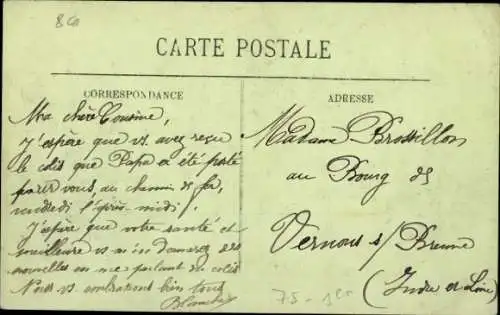 CARTE POSTALE
CORRESPONDANCE
Ma chère Cousine,
J'espère que vs. avez reçu
le colis que Papa a été porté
pour vous, au chemin de fer,
vendredi l'après-midi.
J'espère que votre santé est
meilleure vs m'en donnerez des
nouvelles en me parlant du colis
Nous vs embrassons bien tous
Blanche
ADRESSE
Madame Brossillon
au Bourg de
Vernou s/ Brenne
(Indre et Loire)